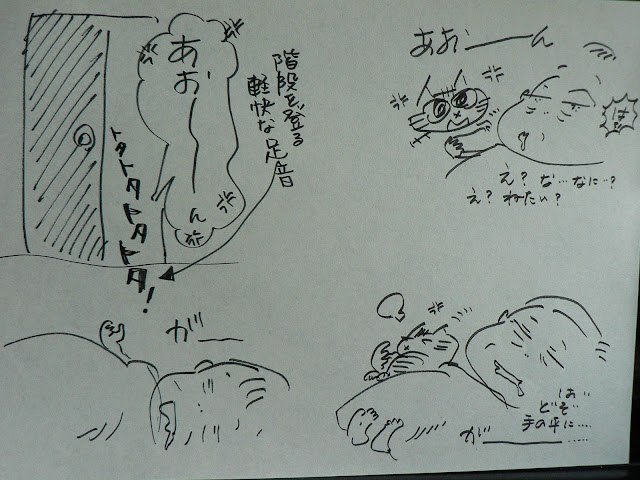 あおーーん
階段を登る
軽快な足音
トタトタトタトタ!
が——
あおーーん
は
え?な…なに…?
え?ねたい?
はぁ‥
どぞ‥
手の平に‥‥
が————‥‥‥